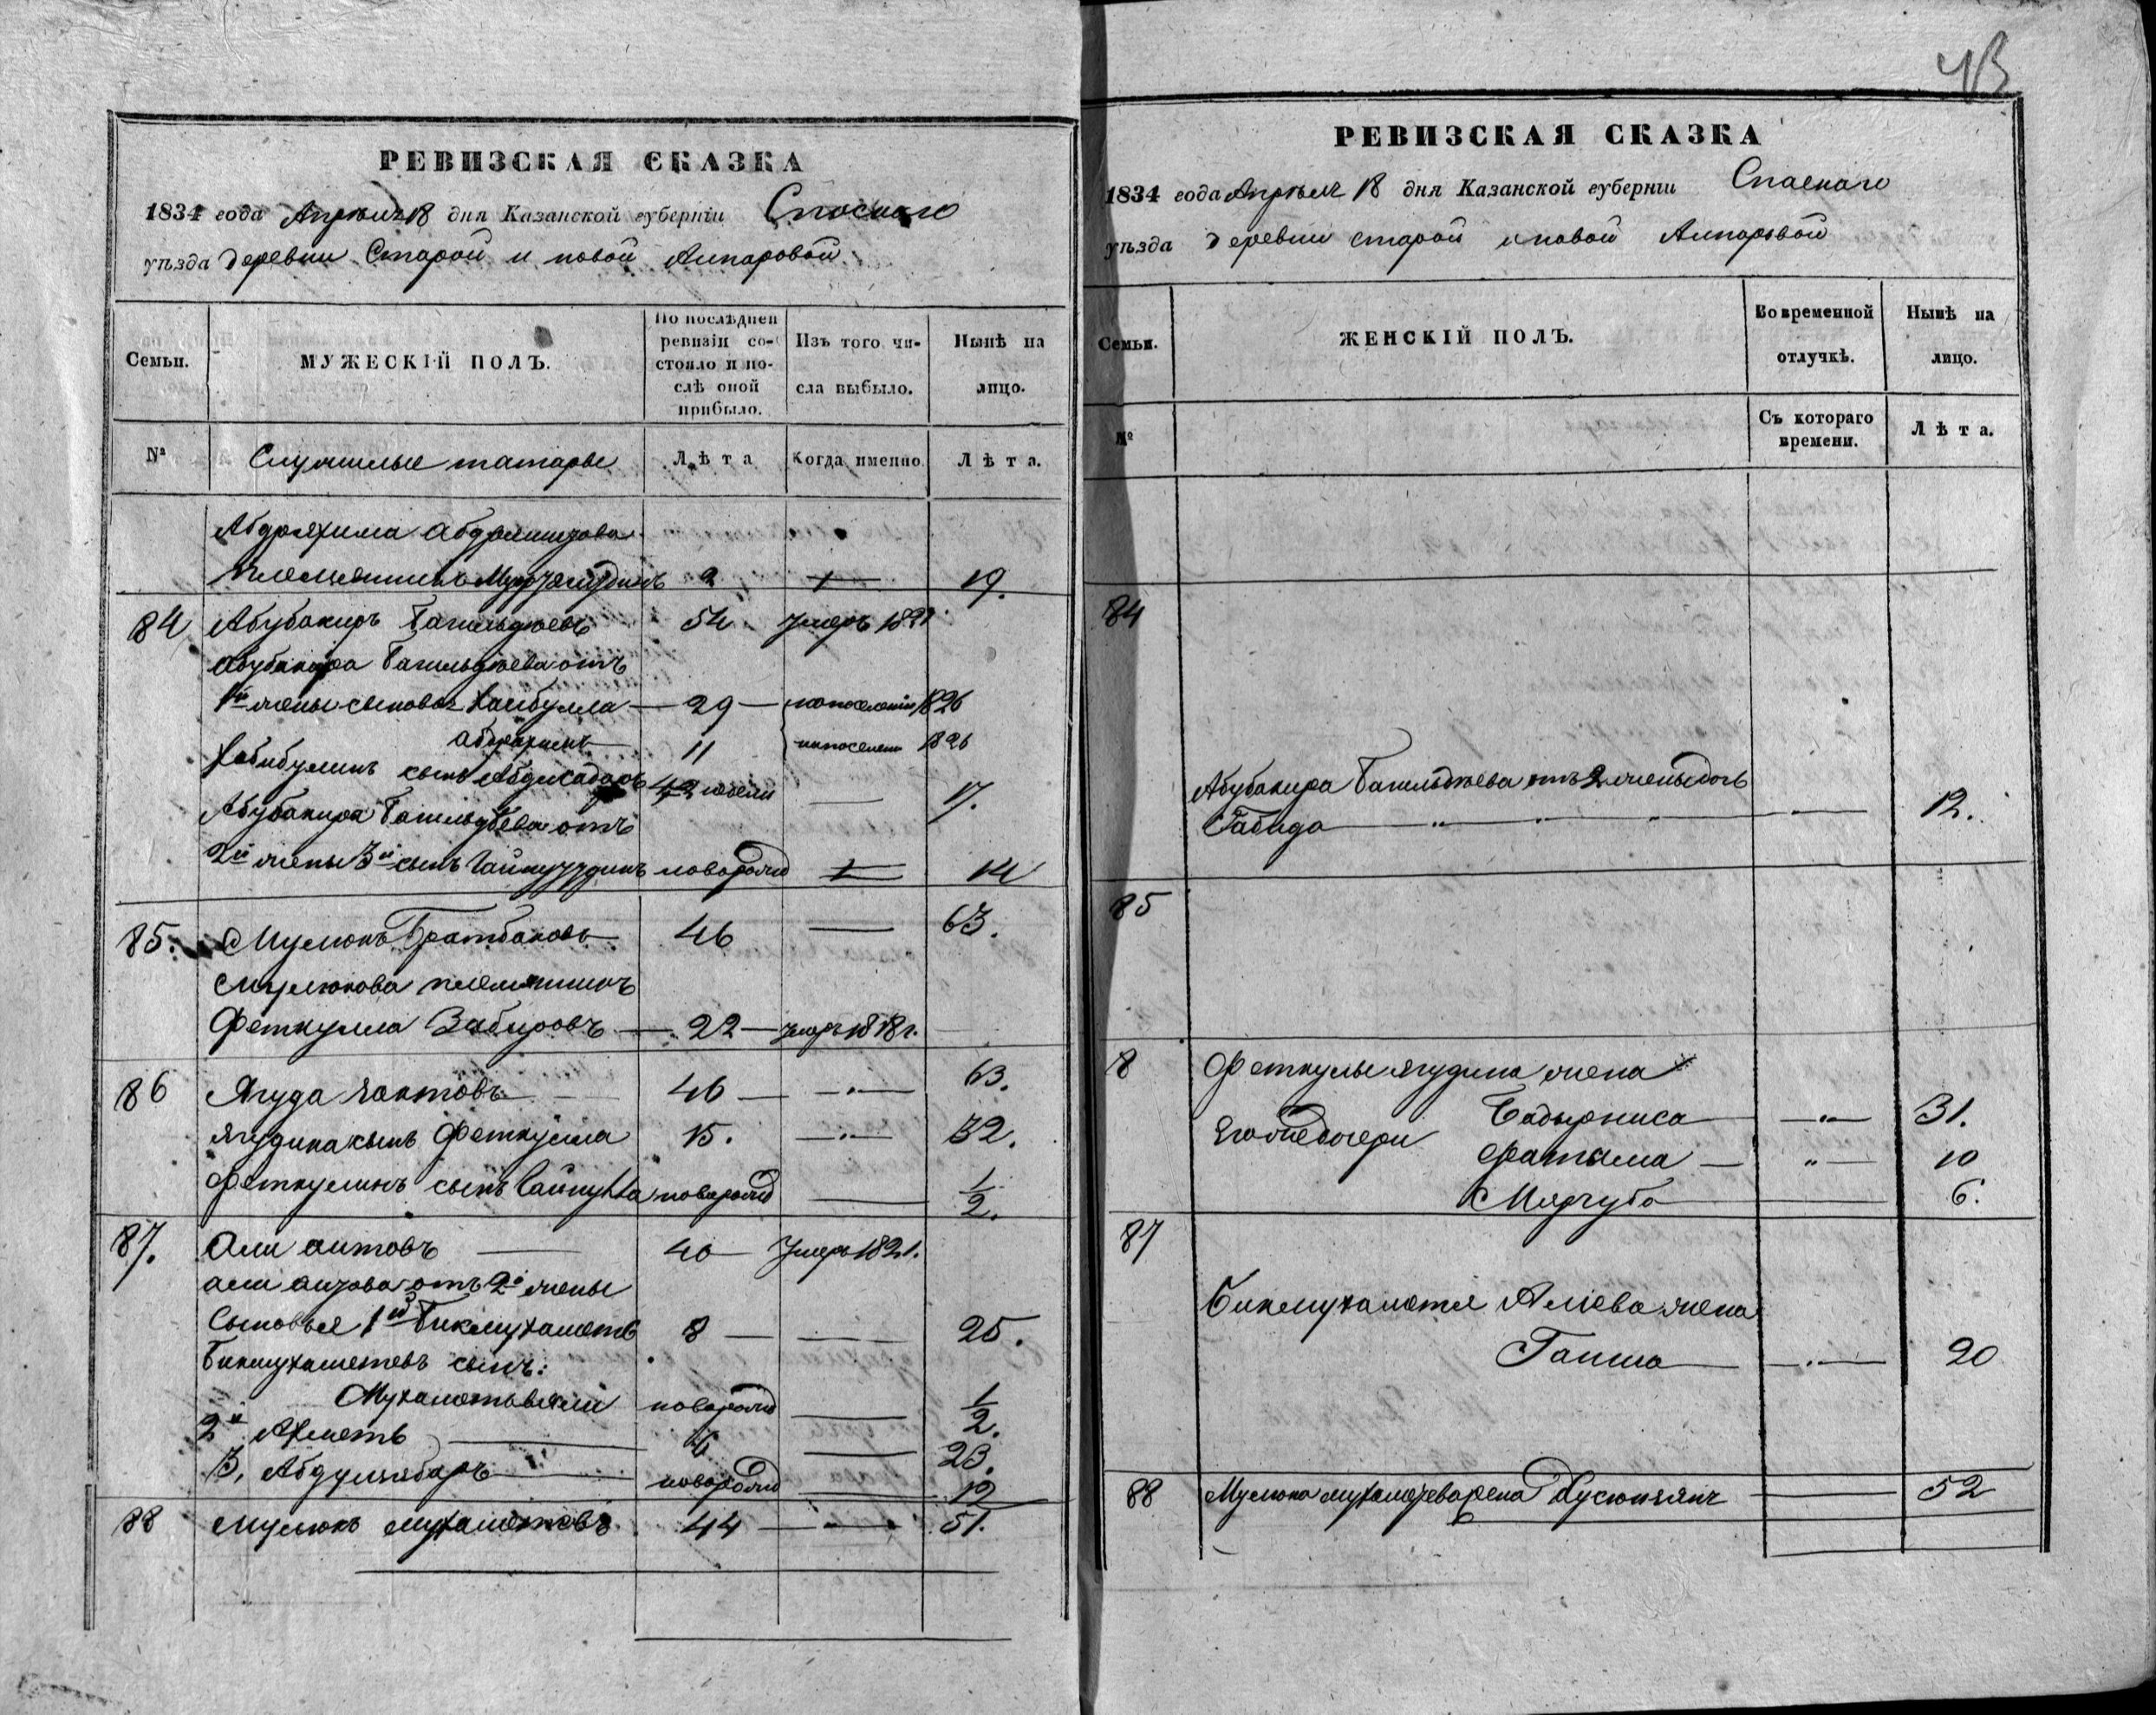 43
РЕВИЗСКАЯ СКАЗКА
1834 года Апреля 18 дня Казанской губерніи Спаскаго
уѣзда деревни Старой и новой Алпаровой
Семьи.
МУЖЕСКІЙ ПОЛЪ.
По послѣдней ревизіи состояло и послѣ оной прибыло.
Изъ того числа выбыло.
Нынѣ на лицо.
№
Служилые татары
Лѣта
Когда именно.
Лѣта.
Абдряхима
племянникъ 2 19.
84 Абубакиръ Бакильдѣевъ 54 Умеръ 1821
Абубакира Бакильдѣева отъ
1й жены сыновья Хаибулла 29 на поселеніи 1826
Абдряхимъ 11 на поселении 1826
Хабибулинъ сынъ Абдлкадыръ 42 недели 17.
Абубакира Бакильдѣева отъ
2й жены 3й сынъ новорожд 14
85. Мулюкъ Братбаковъ 46 63.
Мулюкова племянникъ
Феткулла Забировъ 22 умеръ 1818 г.
86 Ягуда 46 63.
Ягудина сынъ Феткулла 15. 32.
Феткулинъ сынъ новорожд 1/2.
87. Али аитовъ 40 Умеръ 1821.
али аитова отъ 2й жены
Сыновья 1й Бикмухаметъ 8 25.
Бикмухаметевъ сынъ:
Мухаметьвяли новорожд 1/2.
2й Ахметь 6 23.
3, Абдулзябаръ новорожд 12
88 Мулюкъ мухаметовъ 44 51.
РЕВИЗСКАЯ СКАЗКА
1834 года Апреля 18 дня Казанской губерніи Спаскаго
уѣзда деревни старой и новой Алпаровой
Семьи.
ЖЕНСКІЙ ПОЛЪ.
Во временной отлучкѣ.
Нынѣ на лицо.
№
Съ котораго времени.
Лѣта.
84
Абубакира Бакильдѣева отъ 2 жены дочь
Габида 12.
85
8 Феткулы ягудина жена
Бадырниса 31.
Его дочери Фатыма 10
Мяргуба 6.
87
Бикмухаметя Алиева жена
Гаиша 20
88 Мулюка мухаметева жена 52